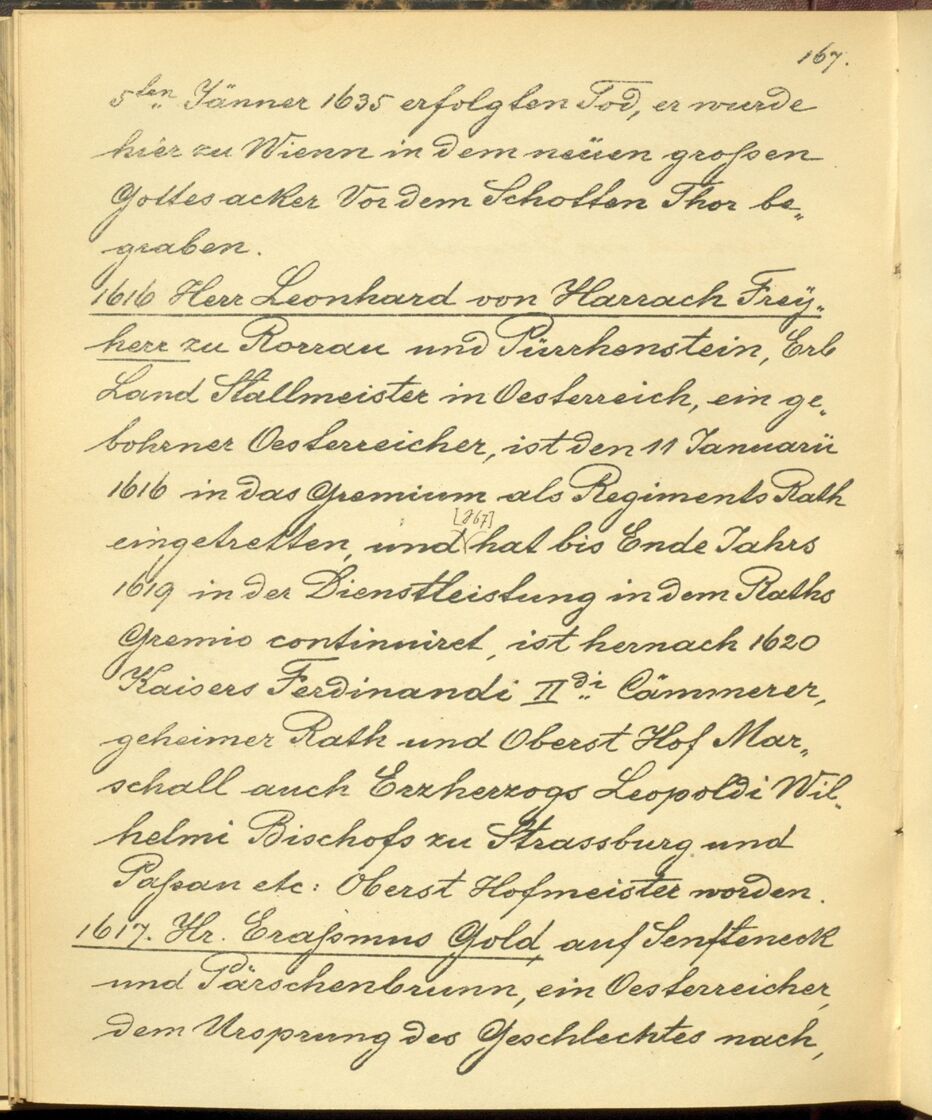 167.
5ten Jänner 1635 erfolgten Tod, er wurde
hier zu Wienn in dem neüen großen
Gottesacker Vor dem Schotten Thor be„
graben.
1616 Herr Leonhard von Harrach Frey„
herr zu Rorrau und Pürrhenstein, Erb
Land Stallmeister in Oesterreich, ein ge„
bohrner Oesterreicher, ist den 11 Januarii
1616 in das Gremium als Regiments Rath
[267]
eingetretten, und hat bis Ende Jahrs
1619 in der Dienstleistung in dem Raths
Gremio continuiret, ist hernach 1620
Kaisers Ferdinandi II di Cämmerer,
geheimer Rath und Oberst Hof Mar„
schall auch Erzherzogs Leopoldi Wil„
helmi Bischofs zu Strassburg und
Paßan etc: Oberst Hofmeister worden.
1617. Hr. Eraßmus Gold, auf Senfteneck
und Pärschenbrunn, ein Oesterreicher,
dem Ursprung des Geschlechtes nach,